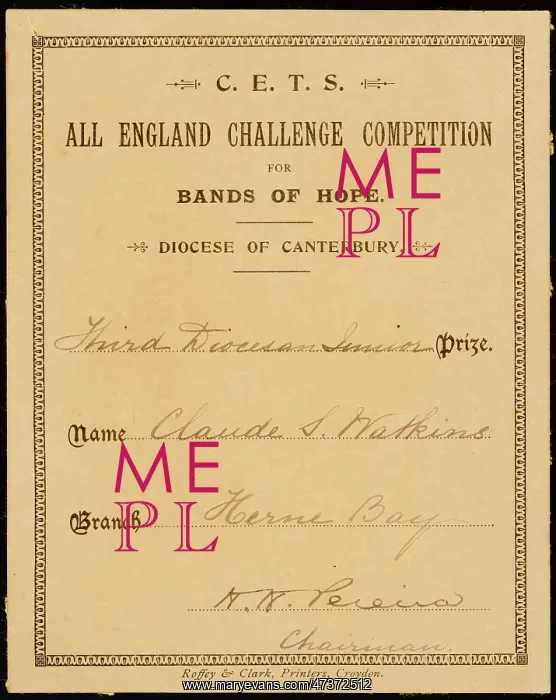 C. E. T. S.
ALL ENGLAND CHALLENGE COMPETITION
FOR
BANDS OF HOPE.
DIOCESE OF CANTERBURY.
Third Diocesan Junior Prize.
Name Claude S. Watkins
Branch Herne Bay
H. H. Pereira
Chairman.
Roffey & Clark, Printers, Croydon.
ME
PL
ME
PL
www.maryevans.com/47372512